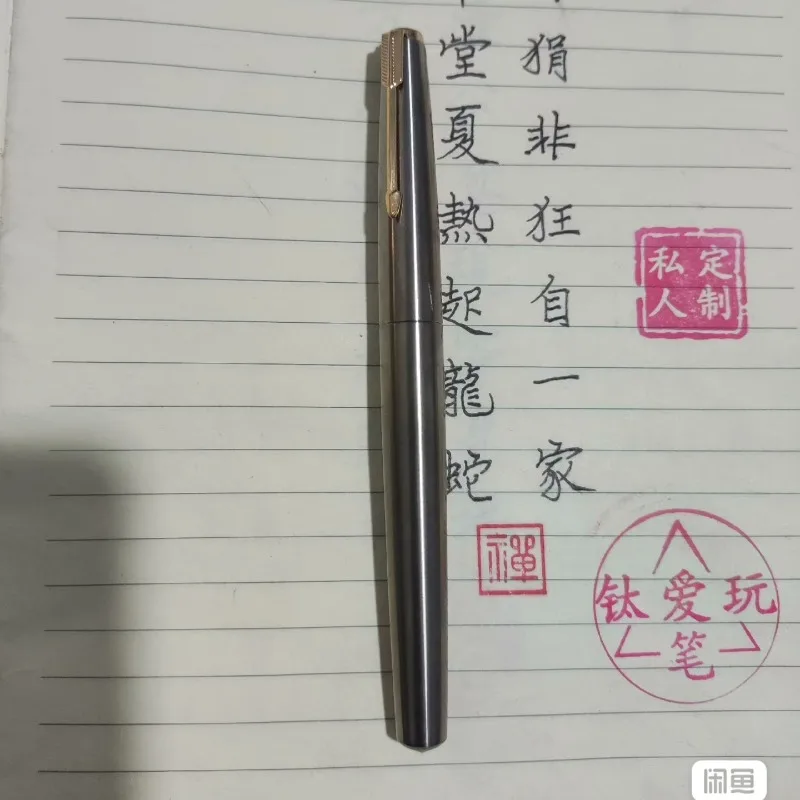 狷非狂自一家
堂夏熱起龍蛇
私人定制
禪
钛爱玩笔
闲鱼